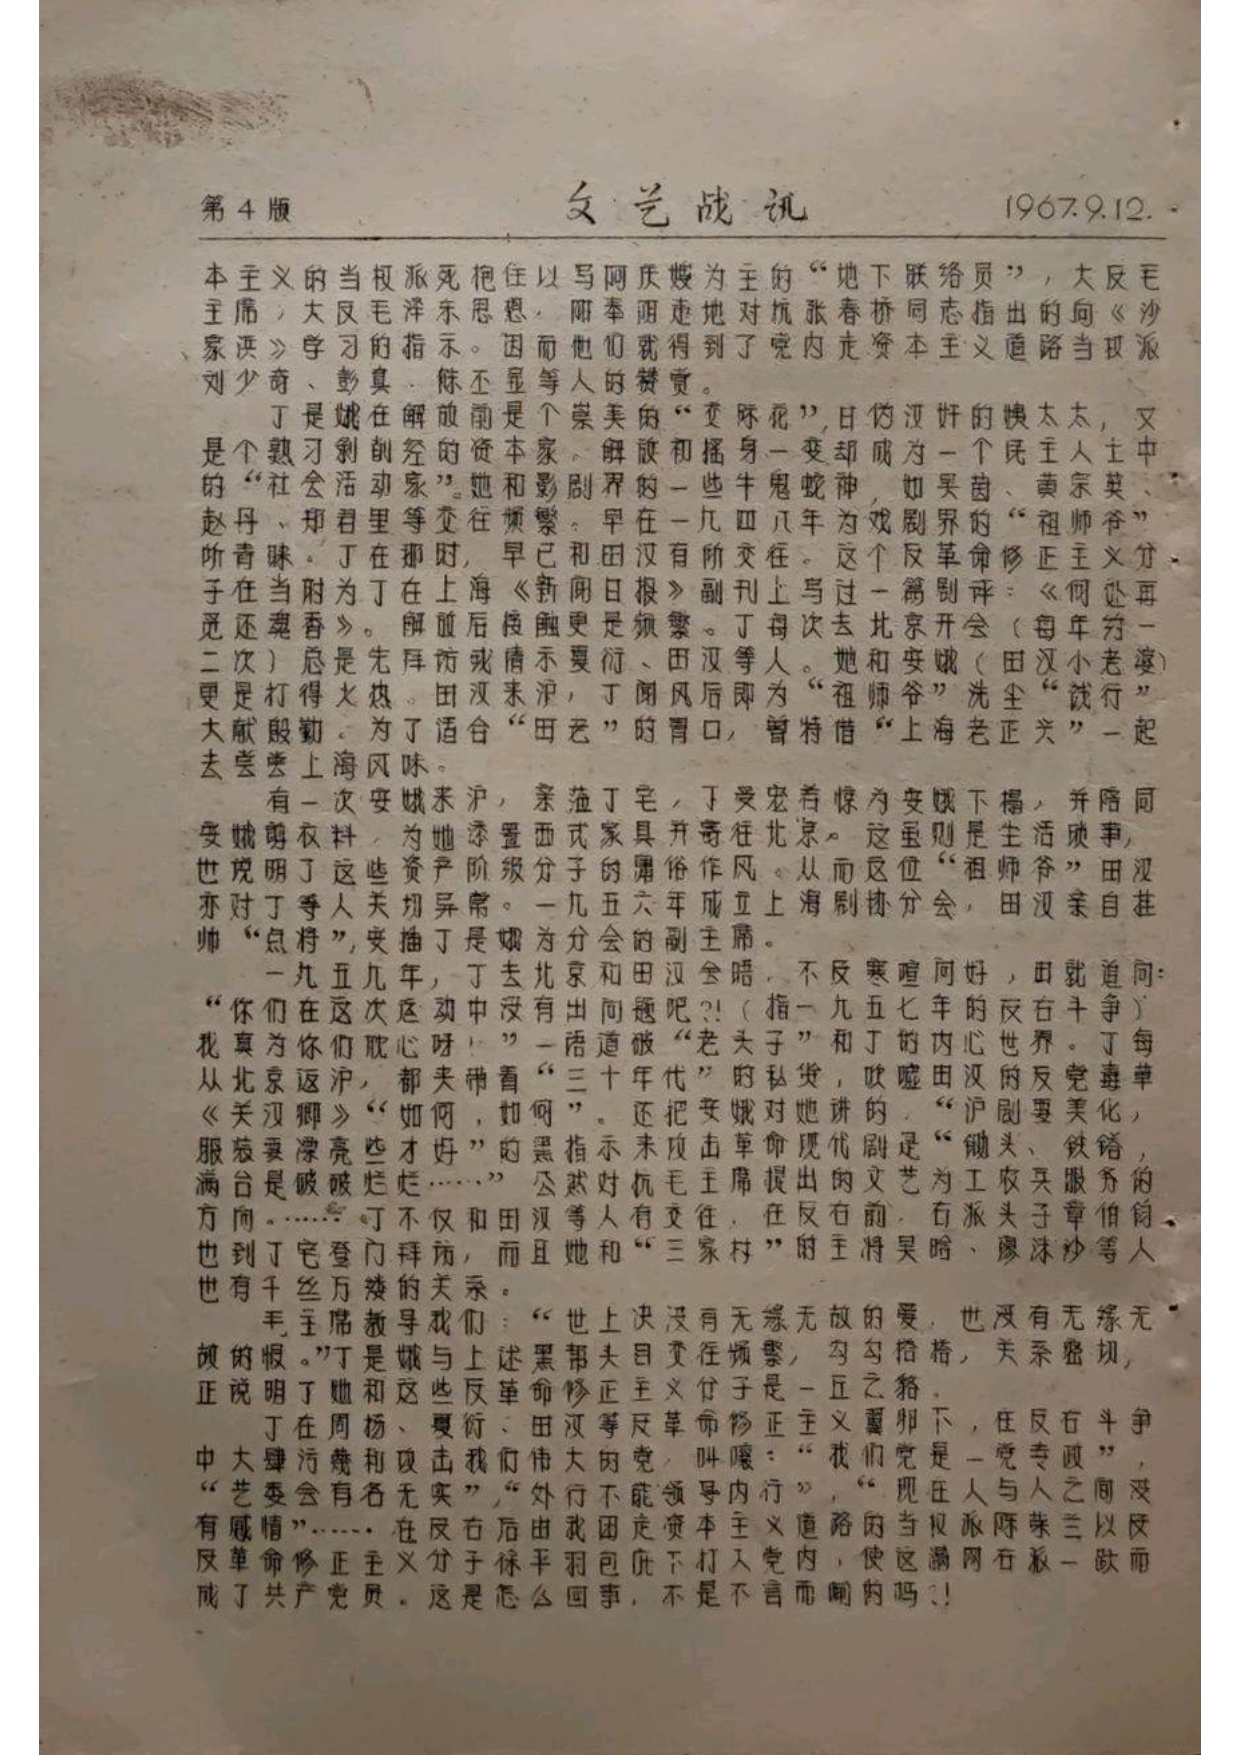 第4版 文艺战讯 1967.9.12.
本主义的当权派死抱住以写阿庆嫂为主的“地下联络员”，大反毛
主席，大反毛泽东思想，阳奉阴违地对抗张春桥同志指出的向《沙
家浜》学习的指示。因而他们就得到了党内走资本主义道路当权派
刘少奇、彭真、陈丕显等人的赞赏。
丁是娥在解放前是个崇美的“交际花”，日伪汉奸的姨太太，又
是个熟习剥削经的资本家。解放和摇身一变却成为一个民主人士中
的“社会活动家”。她和影剧界的一些牛鬼蛇神，如吴茵、黄宗英、
赵丹、郑君里等交往频繁。早在一九四八年为戏剧界的“祖师爷”
所青睐。丁在那时，早已和田汉有所交往。这个反革命修正主义分
子在当时为丁在上海《新闻日报》副刊上写过一篇剧评：《何处再
觅还魂香》。解放后接触更是频繁。丁每次去北京开会（每年约一
二次）总是先拜访或请示夏衍、田汉等人。她和安娥（田汉小老婆）
更是打得火热。田汉来沪，丁闻风后即为“祖师爷”洗尘“饯行”
大献殷勤。为了适合“田老”的胃口，暂特借“上海老正兴”一起
去尝尝上海风味。
有一次安娥来沪，亲莅丁宅，丁受宠若惊为安娥下榻，并陪同
安娥剪衣料，为她添置西式家具并寄往北京。这虽则是生活琐事，
也说明了这些资产阶级分子的庸俗作风。从而这位“祖师爷”田汉
亦对丁等人关切异常。一九五六年成立上海剧协分会，田汉亲自挂
帅“点将”，安插丁是娥为分会的副主席。
一九五九年，丁去北京和田汉会晤，不反寒喧问好，田就道问：
“你们在这次运动中没有出问题吧？！（指一九五七年的反右斗争）
我真为你们耽心呀！”一语道破“老头子”和丁的内心世界。丁每
从北京返沪，都夹带着“三十年代”的私货，吹嘘田汉的反党毒草
《关汉卿》“如何，如何”。还把安娥对她讲的，“沪剧要美化，
服装要漂亮些才好”的黑指示来攻击革命现代剧是“锄头、铁锴，
满台是破破烂烂……”公然对抗毛主席提出的文艺为工农兵服务的
方向。……丁不仅和田汉等人有交往，在反右前，右派头子章伯钧
也到丁宅登门拜访，而且她和“三家村”的主将吴晗、廖沫沙等人
也有千丝万缕的关系。
毛主席教导我们：“世上决没有无缘无故的爱，也没有无缘无
故的恨。”丁是娥与上述黑帮头目交往频繁，勾勾搭搭，关系密切，
正说明了她和这些反革命修正主义分子是一丘之貉。
丁在周扬、夏衍、田汉等反革命修正主义翼卵下，在反右斗争
中大肆污蔑和攻击我们伟大的党，叫嚷：“我们党是一党专政”，
“艺委会有名无实”，“外行不能领导内行”，“现在人与人之间没
有感情”……在反右后由我团走资本主义道路的当权派陈荣兰以反
反革命修正主义分子徐平羽包庇下打入党内，使这漏网右派一跃而
成了共产党员。这是怎么回事，不是不言而喻的吗？！